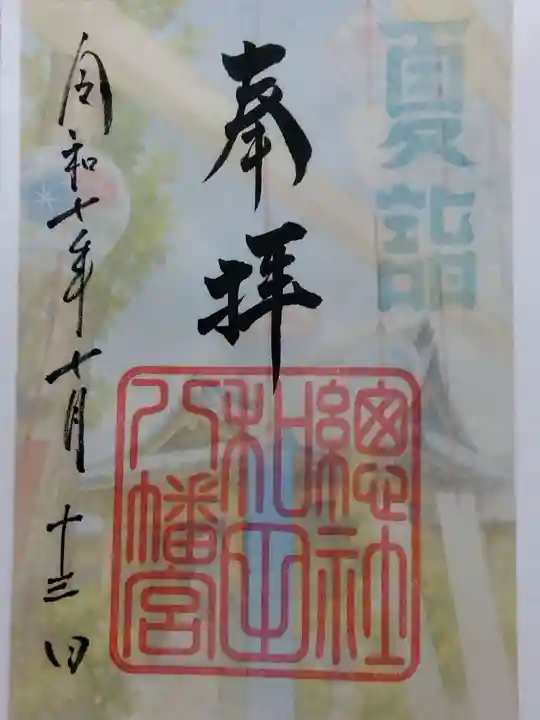 夏詣
奉拝
總社
和田
八幡宮
令和七年七月十三日